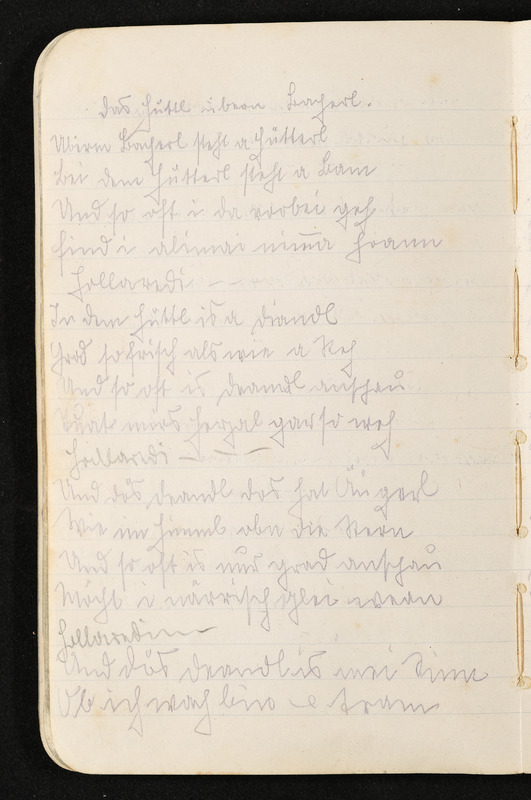 Das Hüttl übern Bacherl.
Überm Bacherl steht a Hütterl
Bei dem Hütterl steht a Bam
Und so oft i da vorbei geh
find i alimai nimma hoam
Hollaredi
In dem Hüttl is a Diandl
Grod so frisch als wie a Reh
Und so oft is Deandl anschau
Tuat mirs Herzal gar so weh
Hollaredi
Und dös Deandl dos hat Äugerl
Wie am Himml obn die Stern
Und so oft is nur grad anschau
Möcht i närrisch glei wean
Hollaredi
Und dös Deandl is mei Sinn
Ob ich wach bin tram